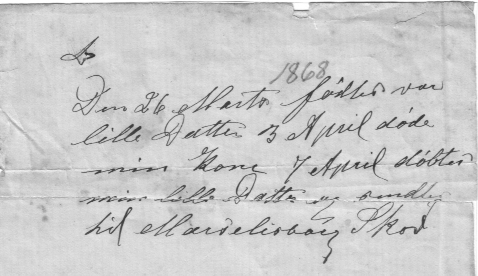 1868
Den 26 Marts fødtes vor
lille Datter 3 April døde
min Kone 7 April døbtes
min lille Datter og sendtes
til Marselisborg Skov